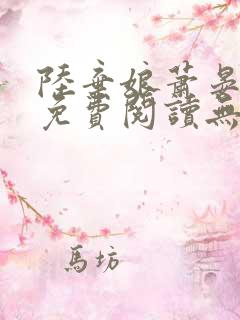 陸棄娘蕭晏
免費閱讀無
馬坊